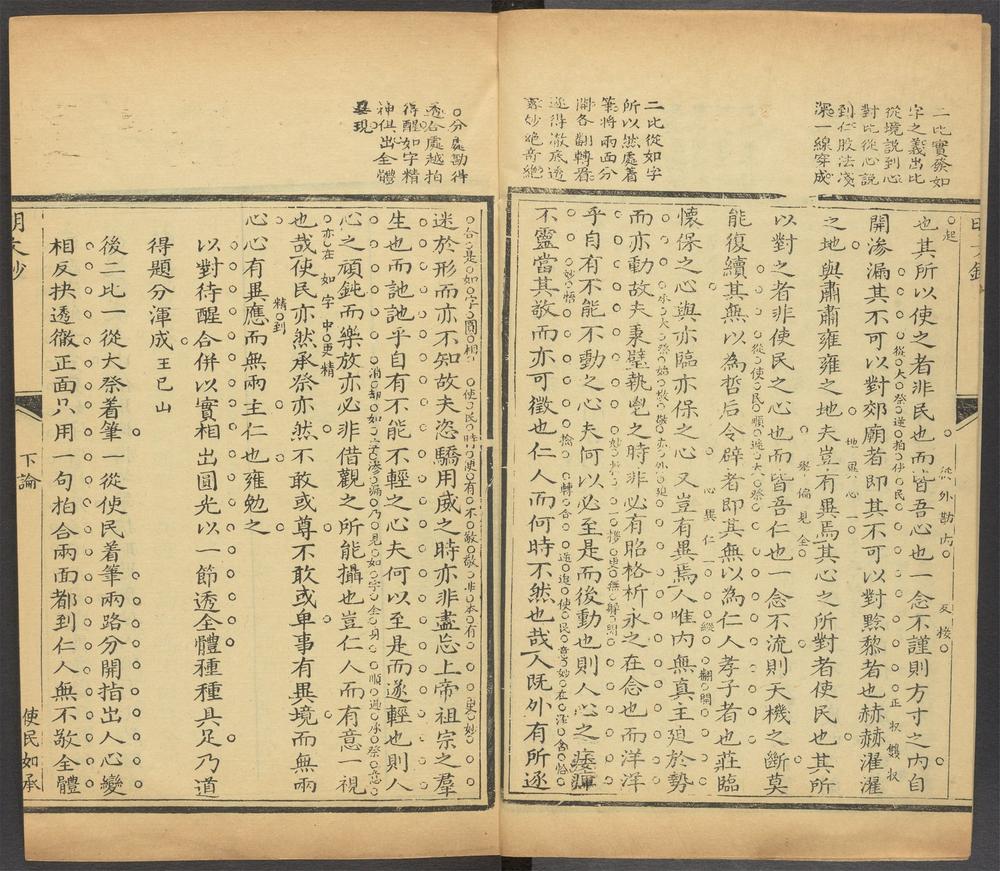 二比實發如
字之義出比
從境說到心
對比從心說
到仁股法淺
深一線穿成
也其所以使之者非民也而皆吾心也一念不謹則方寸之內自
開滲漏其不可以對郊廟者即其不可以對黔黎者也赫赫濯濯
之地與肅肅雍雍之地夫豈有異焉其心之所對者使民也其所
以對之者非使民之心也而皆吾仁也一念不流則天機之斷莫
能復續其無以為哲后令辟者即其無以為仁人孝子者也莊臨
懷保之心與亦臨亦保之心又豈有異焉人唯內無真主迫於勢
二比從如字
所以然處着
筆將兩面分
開各翻轉看
逆得澈底透
露妙絶奇絶
而亦動故夫秉璧執鬯之時非必有昭格祈永之在念也而洋洋
乎自有不能不動之心夫何以必至是而後動也則人心之痿痺
不靈當其敬而亦可徵也仁人而何時不然也哉人既外有所逐
起
從外勘內
反按
正位
地異心一
舉偏見全
心異仁一
翻開
妙悟
明文鈔
○分處勘得
透合處越拍
得醒如字精
神俱出全體
畢現
迷於形而亦不知故夫恣驕用威之時亦非盡忘上帝祖宗之羣
生也而訑訑乎自有不能不輕之心夫何以至是而遂輕也則人
心之頑鈍而樂放亦必非借觀之所能攝也豈仁人而有意一視
也哉使民亦然承祭亦然不敢或尊不敢或卑事有異境而無兩
心心有異應而無兩主仁也雍勉之
合是如字圓相
亦在如字中更精
精到
以對待醒合併以實相出圓光以一節透全體種種具足乃道
得題分渾成 王巳山
後二比一從大祭着筆一從使民着筆兩路分開指出人心變
相反抉透徹正面只用一句拍合兩面都到仁人無不敬全體
明文鈔
下論
使民如承